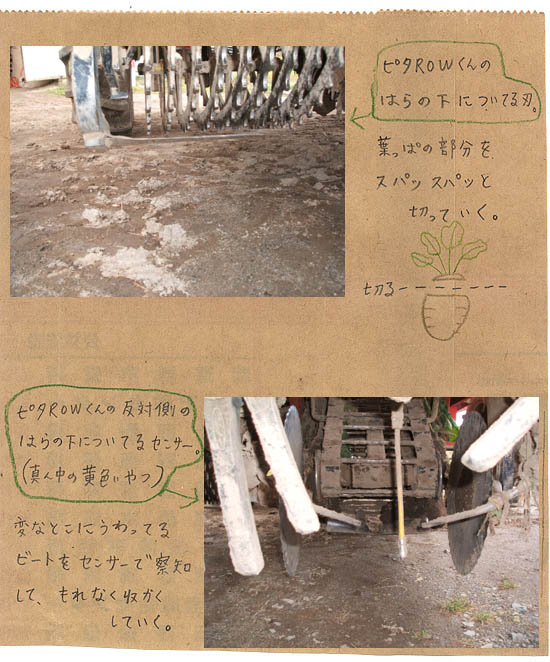 ピタROWくんの
はらの下についてる刃。
葉っぱの部分を
スパッ スパッと
切っていく。
切る
ピタROWくんの反対側の
はらの下についてるセンサー。
(真ん中の黄色いやつ)
変なとこにうわってる
ビートをセンサーで察知
して、もれなく収かく
していく。